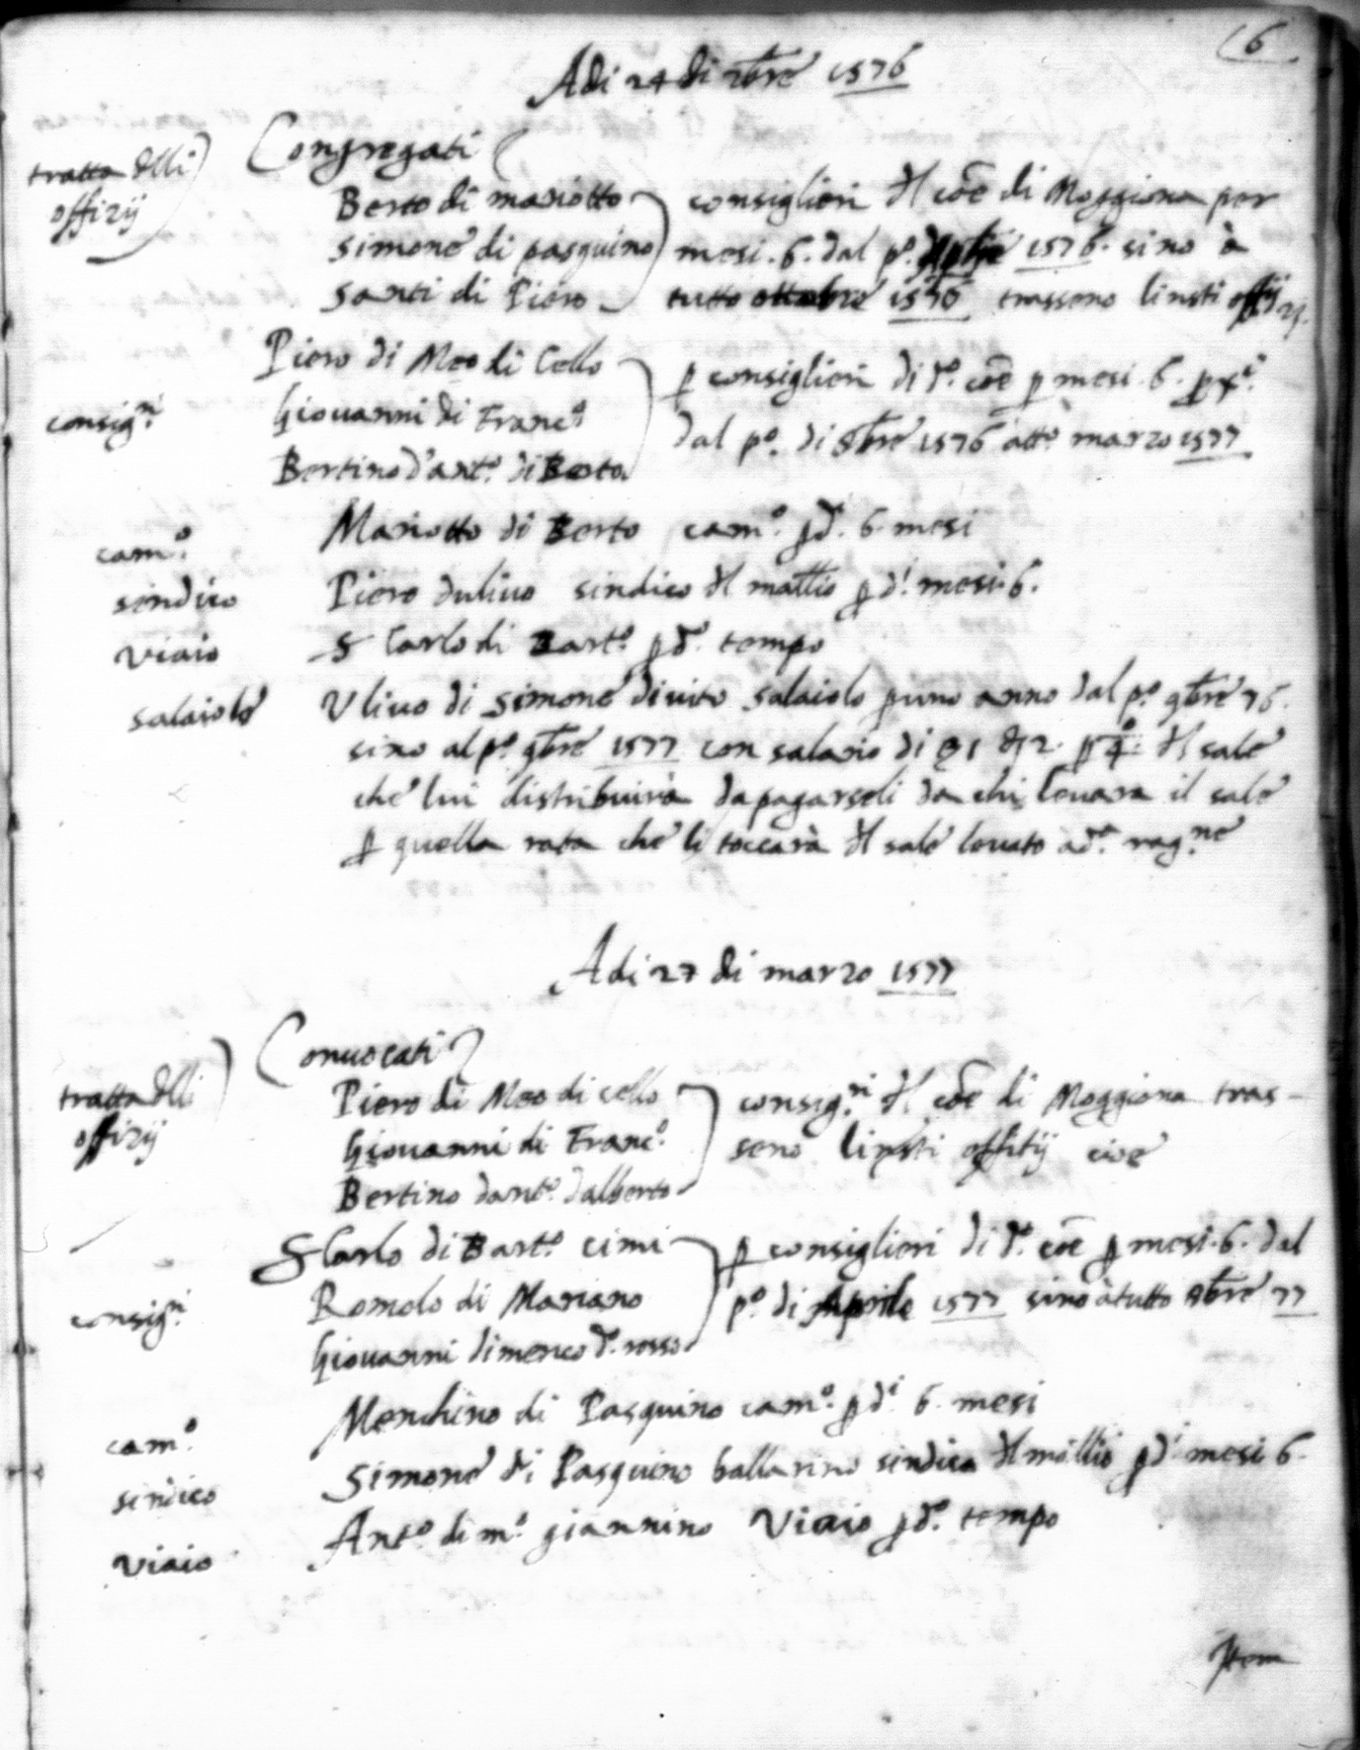 6
Adi 24 di 7bre 1576
tratta dlli
offizij
Congregati
Berto di mariotto
simone di pasquino
santi di Piero
consiglieri dl coe di Moggiona per
mesi .6. dal p.o 1576. sino à
tutto ottobre 1576 trasseno linsti
consig.ri
Piero di Meo di Cello
Giovanni di Franc.o
Bertino d'ant.o di Berto
p consiglieri di d.o coe p mesi .6.
dal p.o di 8bre 1576 à tt.o marzo 1577
cam.o
Mariotto di Berto cam.o p d.i 6. mesi
sindico
Piero dulivo sindico dl p d.i mesi .6.
viaio
S Carlo di Bart.o p d.o tempo
salaiolo
Ulivo di simone di vito salaiolo p uno anno dal p.o 9bre 76.
sino al p.o 9bre 1577 con salario di dl sale
che lui distribuirà da pagarseli da chi levara il sale
p quella rata che li toccarà dl sale levato a d.a rag.ne
Adi 27 di marzo 1577
tratta dlli
offizij
Convocati
Piero di Meo di cello
Giovanni di Franc.o
Bertino dant.o dalberto
consig.ri dl coe di Moggiona tras-
seno linsti offitij cioe
consig.ri
S Carlo di Bart.o cimi
Romolo di Mariano
Giovanni dimenco d.o rosso
p consiglieri di d.o coe p mesi .6. dal
p.o di Aprile 1577 sino à tutto 77
cam.o
Menchino di Pasquino cam.o p d.i 6. mesi
sindico
Simone di Pasquino ballarino sindico dl p d.i mesi 6.
viaio
Ant.o di m.o giannino Viaio p d.o tempo
Item